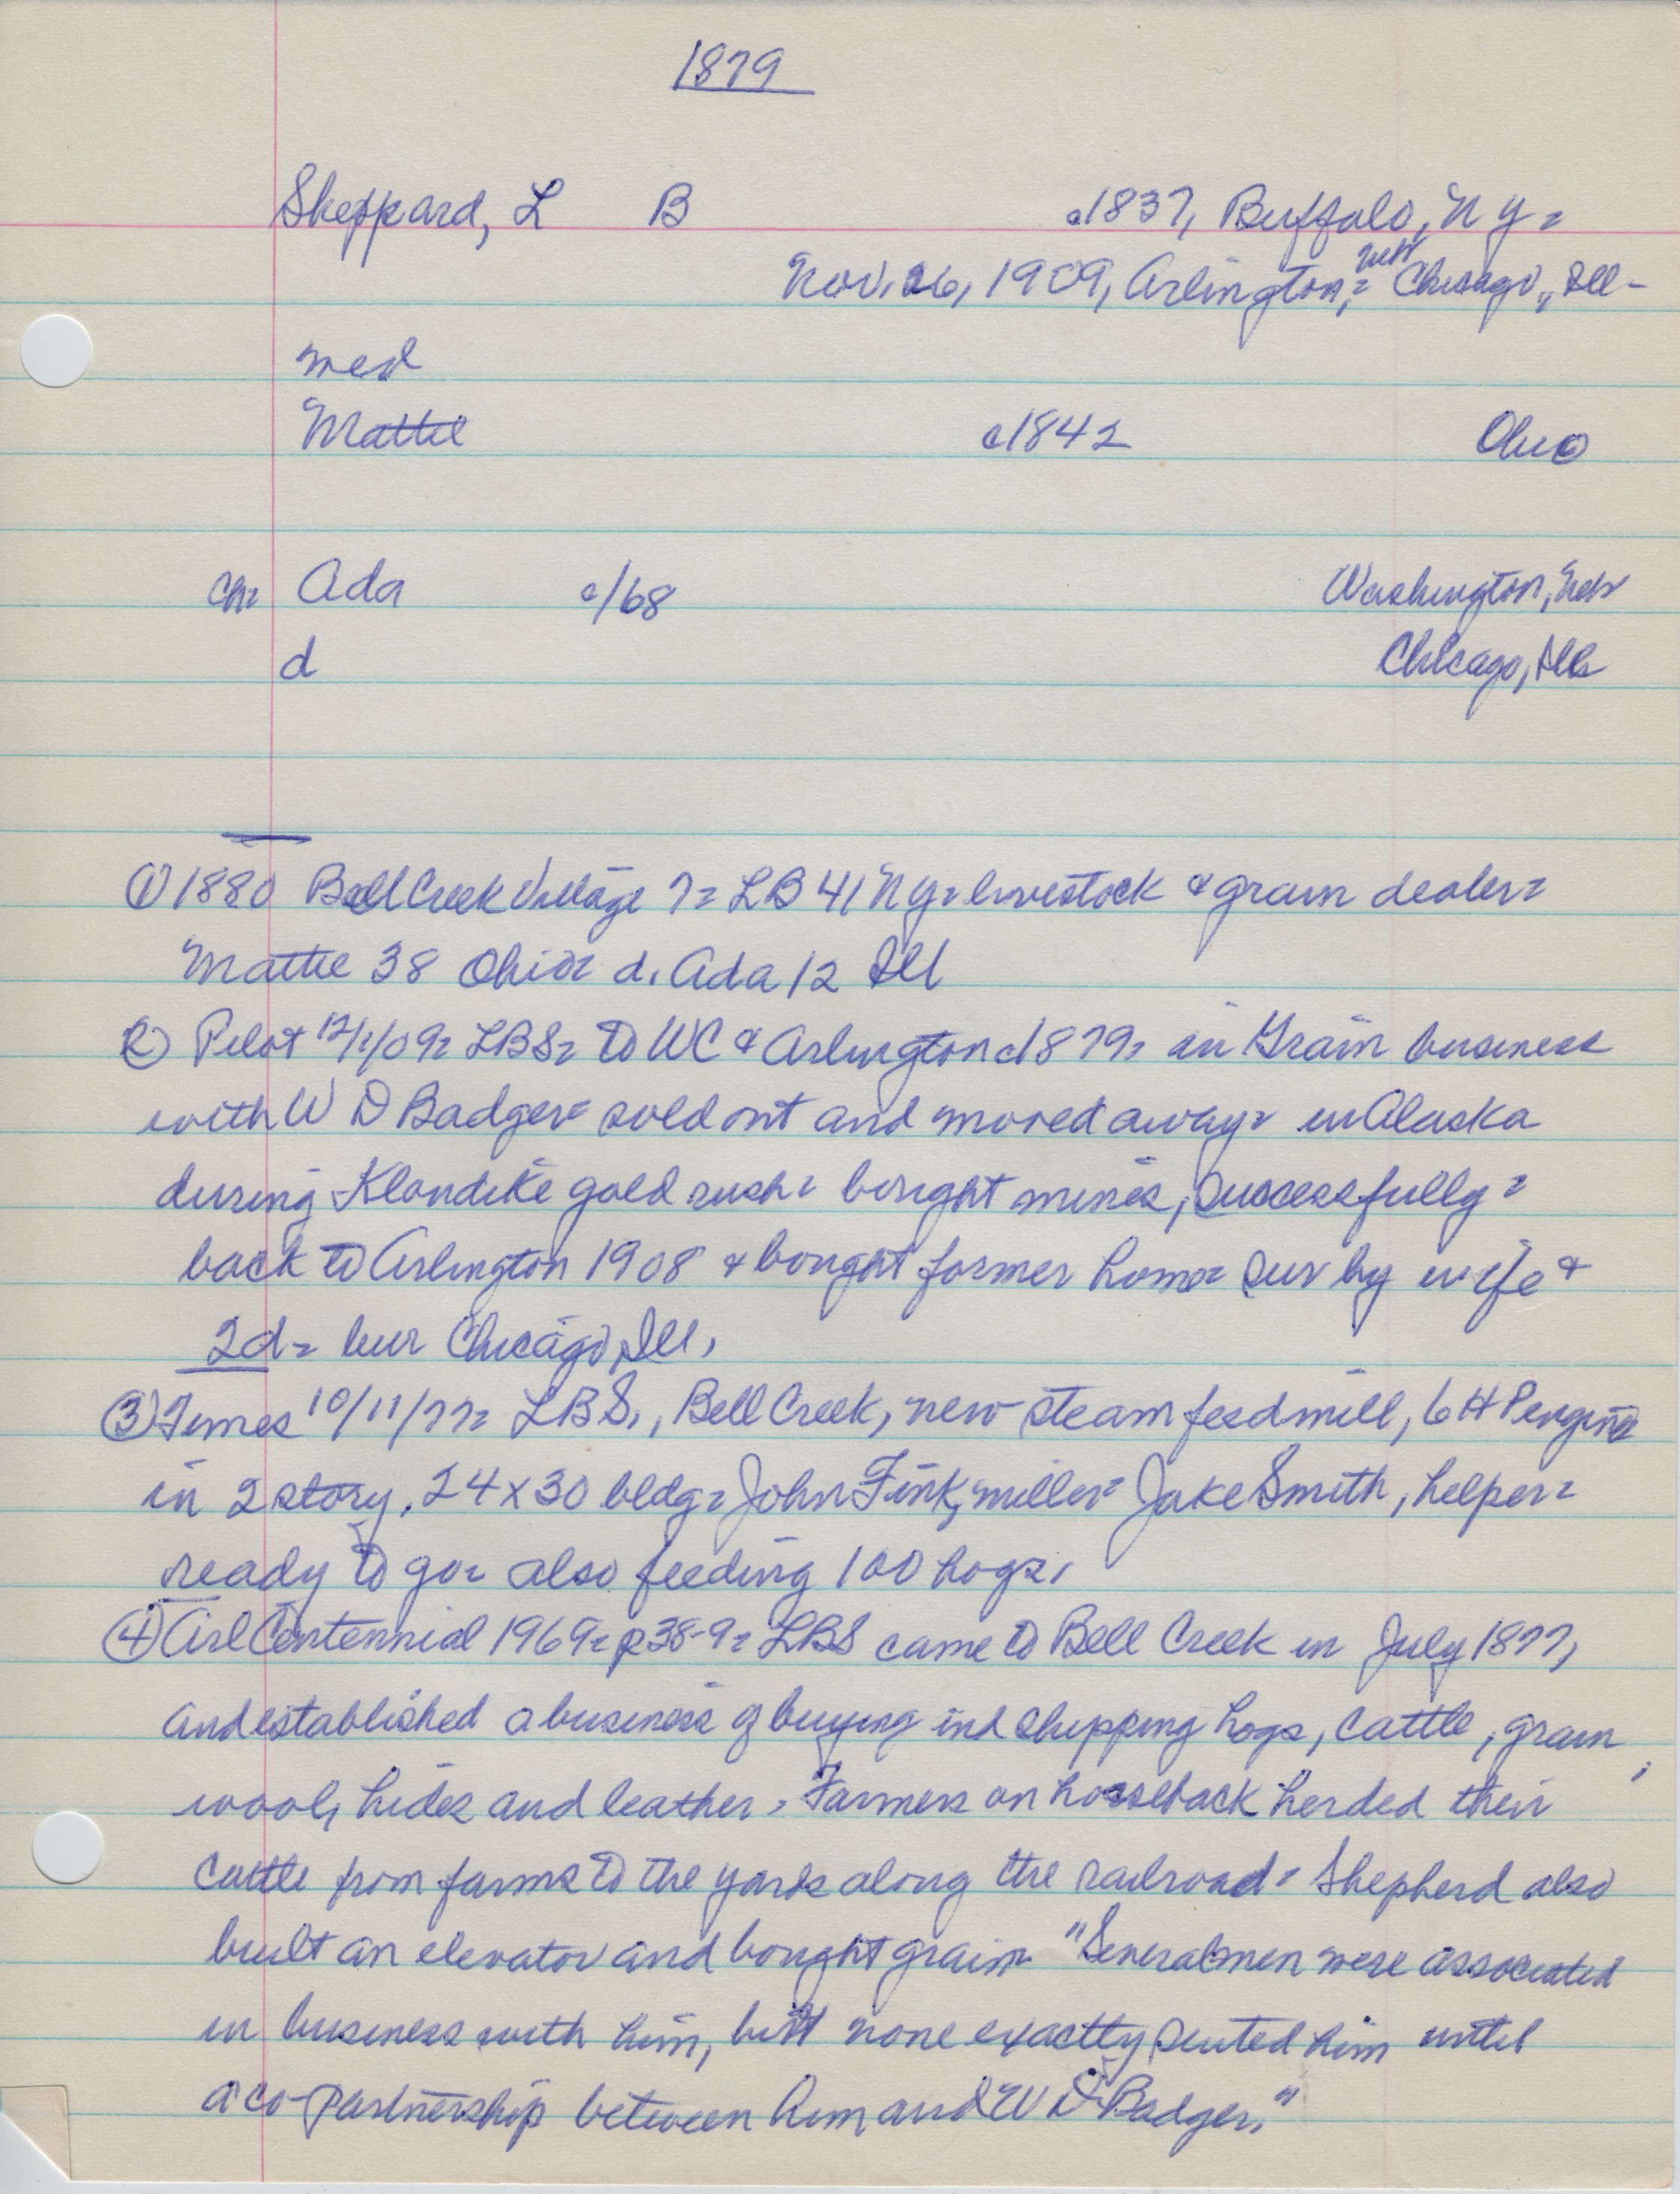 1879
Sheppard, L B c1837, Buffalo, N Y =
Neb
Nov. 26, 1909, Arlington, = Chicago, Ill -
med
Mattie c1842 Ohio
Ch= Ada c/68 Washington, Neb
d Chicago, Ill
① 1880 Bell Creek Village 7= LB 41 NY= livestock & grain dealer=
Mattie 38 Ohio= d. Ada 12 Ill
② Pilot 12/1/09= LBS= to WC & Arlington c1879= in Grain business
with W D Badger= sold out and moved away= in Alaska
during Klondike gold rush= bought mines, successfully=
back to Arlington 1908 & bought former home= sur by wife &
2d= bur Chicago, Ill.
③ Times 10/11/77= LBS., Bell Creek, new steam feed mill, 6 HP engine
in 2 story, 24x30 bldg= John Fink, miller= Jake Smith, helper=
ready to go= also feeding 100 hogs.
④ Arl Centennial 1969= p38-9= LBS came to Bell Creek in July 1877,
and established a business of buying and shipping hogs, cattle, grain,
wool, hides and leather. Farmers on horseback herded their
cattle from farms to the yards along the railroad= Shepherd also
built an elevator and bought grain= "Several men were associated
in business with him, but none exactly suited him until
a co-partnership between him and W D Badger."